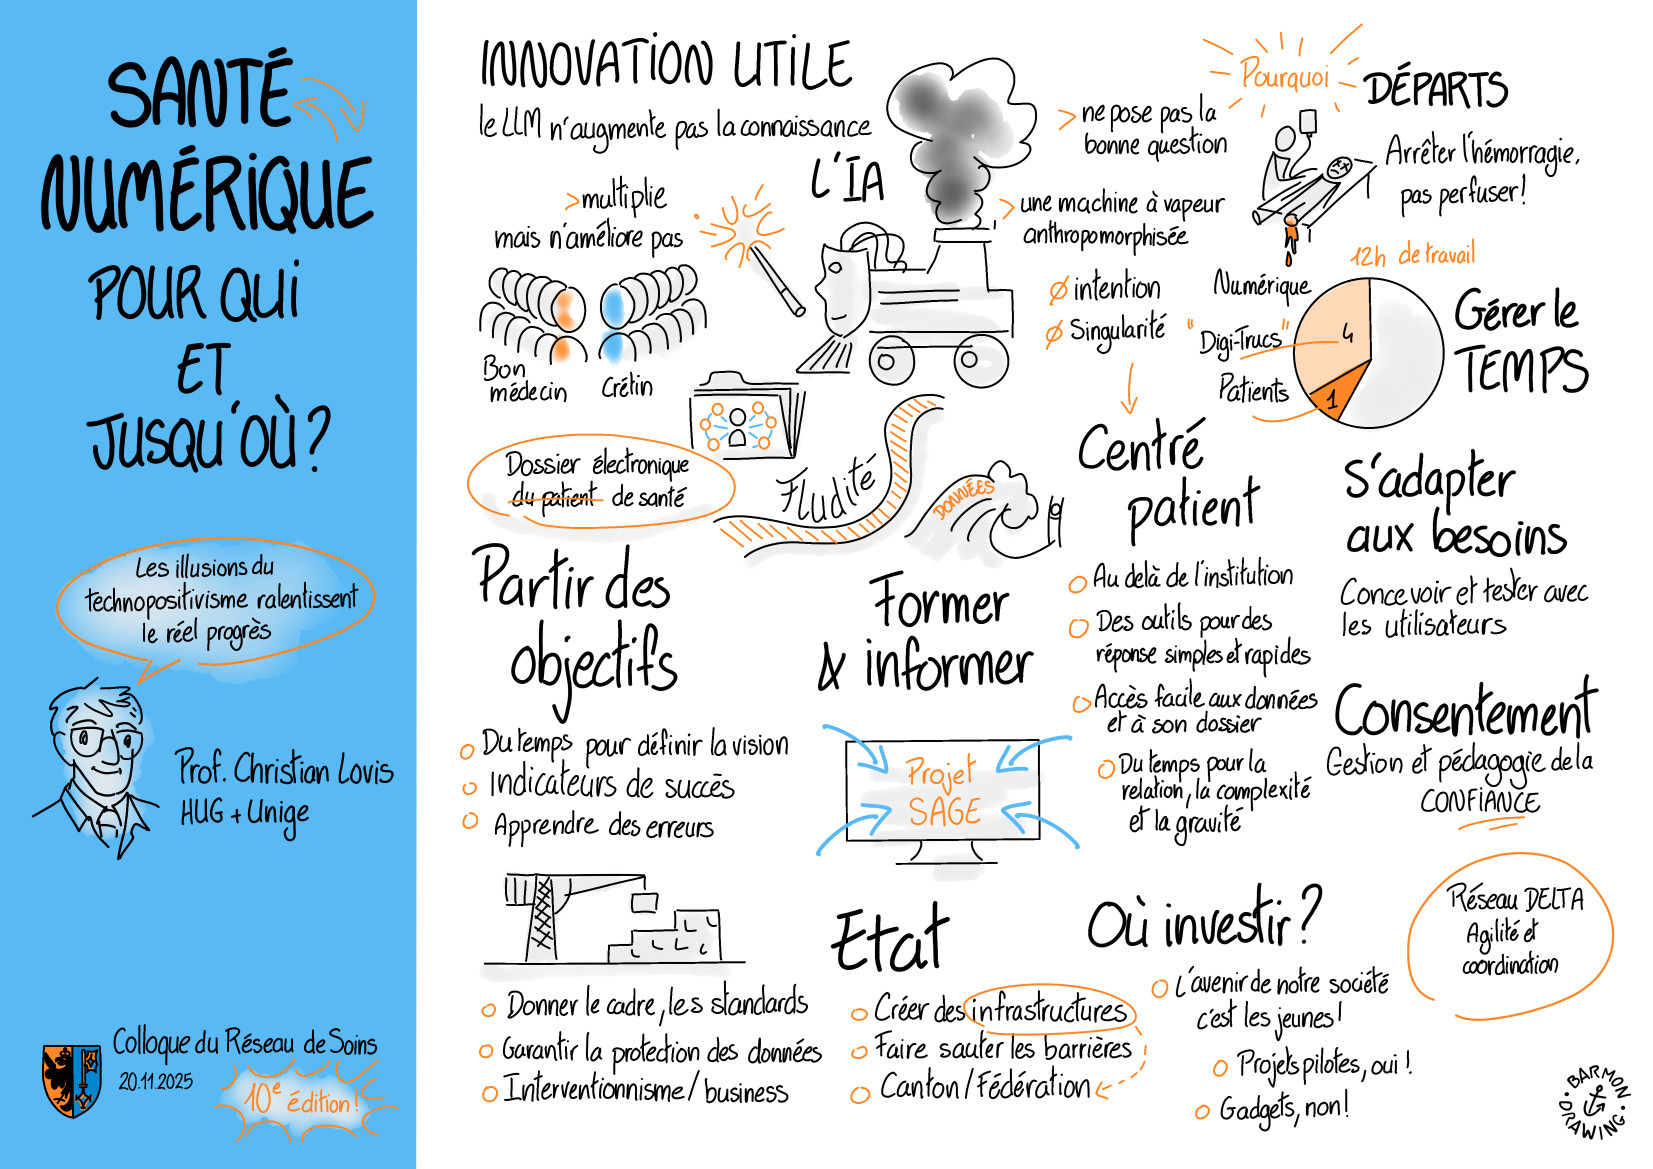 SANTÉ
NUMÉRIQUE
POUR QUI
ET
JUSQU'OÙ?
Les illusions du
technopositivisme ralentissent
le réel progrès
Prof. Christian Lovis
HUG + Unige
Colloque du Réseau de Soins
20.11.2025
10e édition!
INNOVATION UTILE
le LLM n'augmente pas la connaissance
>multiplie
mais n'améliore pas
Bon
médecin
Crétin
L'IA
> ne pose pas la
bonne question
> une machine à vapeur
anthropomorphisée
Ø intention
Ø Singularité
Pourquoi
DÉPARTS
Arrêter l'hémorragie,
pas perfuser!
12h de travail
Numérique
"Digi-Trucs"
Patients
4
1
Gérer le
TEMPS
Dossier électronique
du patient de santé
Fludité
DONNÉES
Centré
patient
Au delà de l'institution
Des outils pour des
réponse simples et rapides
Accès facile aux données
et à son dossier
Du temps pour la
relation, la complexité
et la gravité
S'adapter
aux besoins
Concevoir et tester avec
les utilisateurs
Consentement
Gestion et pédagogie de la
CONFIANCE
Partir des
objectifs
Du temps pour définir la vision
Indicateurs de succès
Apprendre des erreurs
Former
& informer
Projet
SAGE
Donner le cadre, les standards
Garantir la protection des données
Interventionnisme/business
Etat
Créer des infrastructures
Faire sauter les barrières
Canton/Fédération
Où investir?
L'avenir de notre société
c'est les jeunes!
Projets pilotes, oui!
Gadgets, non!
Réseau DELTA
Agilité et
coordination
BARMON
DRAWING